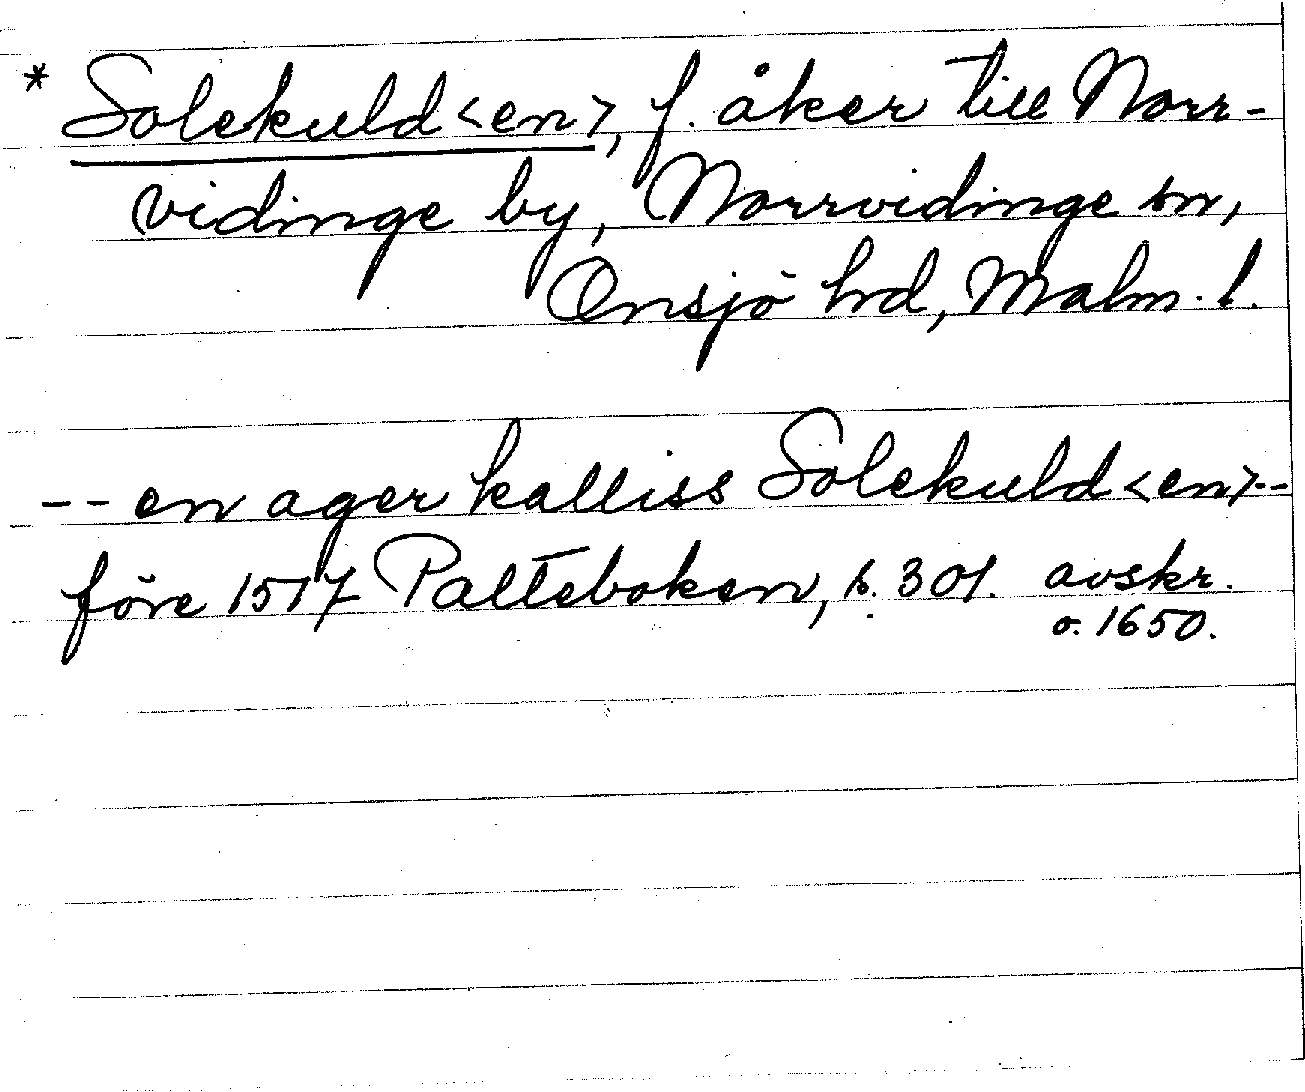 * Solekuld<en>, f. åker till Norr-
vidinge by, Norrvidinge sn,
Onsjö hrd, Malm. l.
-- en ager kalliss Solekuld<en>--
före 1517 Palteboken, s. 301. avskr.
o. 1650.